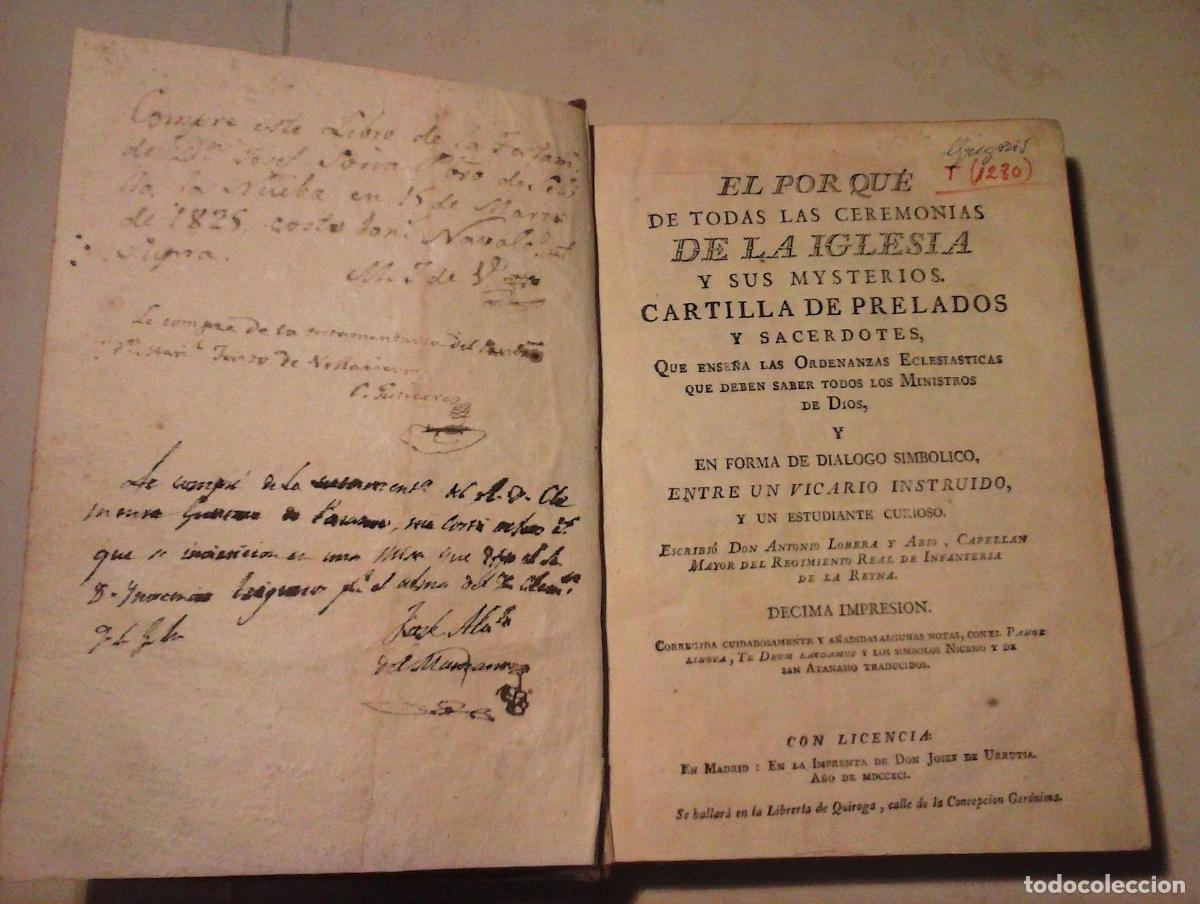 Compre este Libro de la Testam.
de Dn. Josef Soria Pbro de
la Nueba en 15 de Marzo
de 1825, costo
M. J de
Le compre de la testamentaria del
de
C. Gutierrez
Le compré de la testament.ª del
de
que se en una Misa que dijo el
D. Inocencio por el alma del
José
del Manzano
Gregorio
T (1280)
EL POR QUÉ
DE TODAS LAS CEREMONIAS
DE LA IGLESIA
Y SUS MYSTERIOS.
CARTILLA DE PRELADOS
Y SACERDOTES,
QUE ENSEÑA LAS ORDENANZAS ECLESIASTICAS
QUE DEBEN SABER TODOS LOS MINISTROS
DE DIOS,
Y
EN FORMA DE DIALOGO SIMBOLICO,
ENTRE UN VICARIO INSTRUIDO,
Y UN ESTUDIANTE CURIOSO.
ESCRIBIÓ DON ANTONIO LOBERA Y ABIO, CAPELLAN
MAYOR DEL REGIMIENTO REAL DE INFANTERIA
DE LA REYNA.
DECIMA IMPRESION.
CORREGIDA CUIDADOSAMENTE Y AÑADIDAS ALGUNAS NOTAS, CON EL PANGE
LINGUA, TE DEUM LAUDAMUS Y LOS SIMBOLOS NICENO Y DE
SAN ATANASIO TRADUCIDOS.
CON LICENCIA:
EN MADRID: EN LA IMPRENTA DE DON JOSEF DE URRUTIA.
AÑO DE MDCCXCI.
Se hallará en la Librería de Quiroga, calle de la Concepcion Gerónima.
todocoleccion